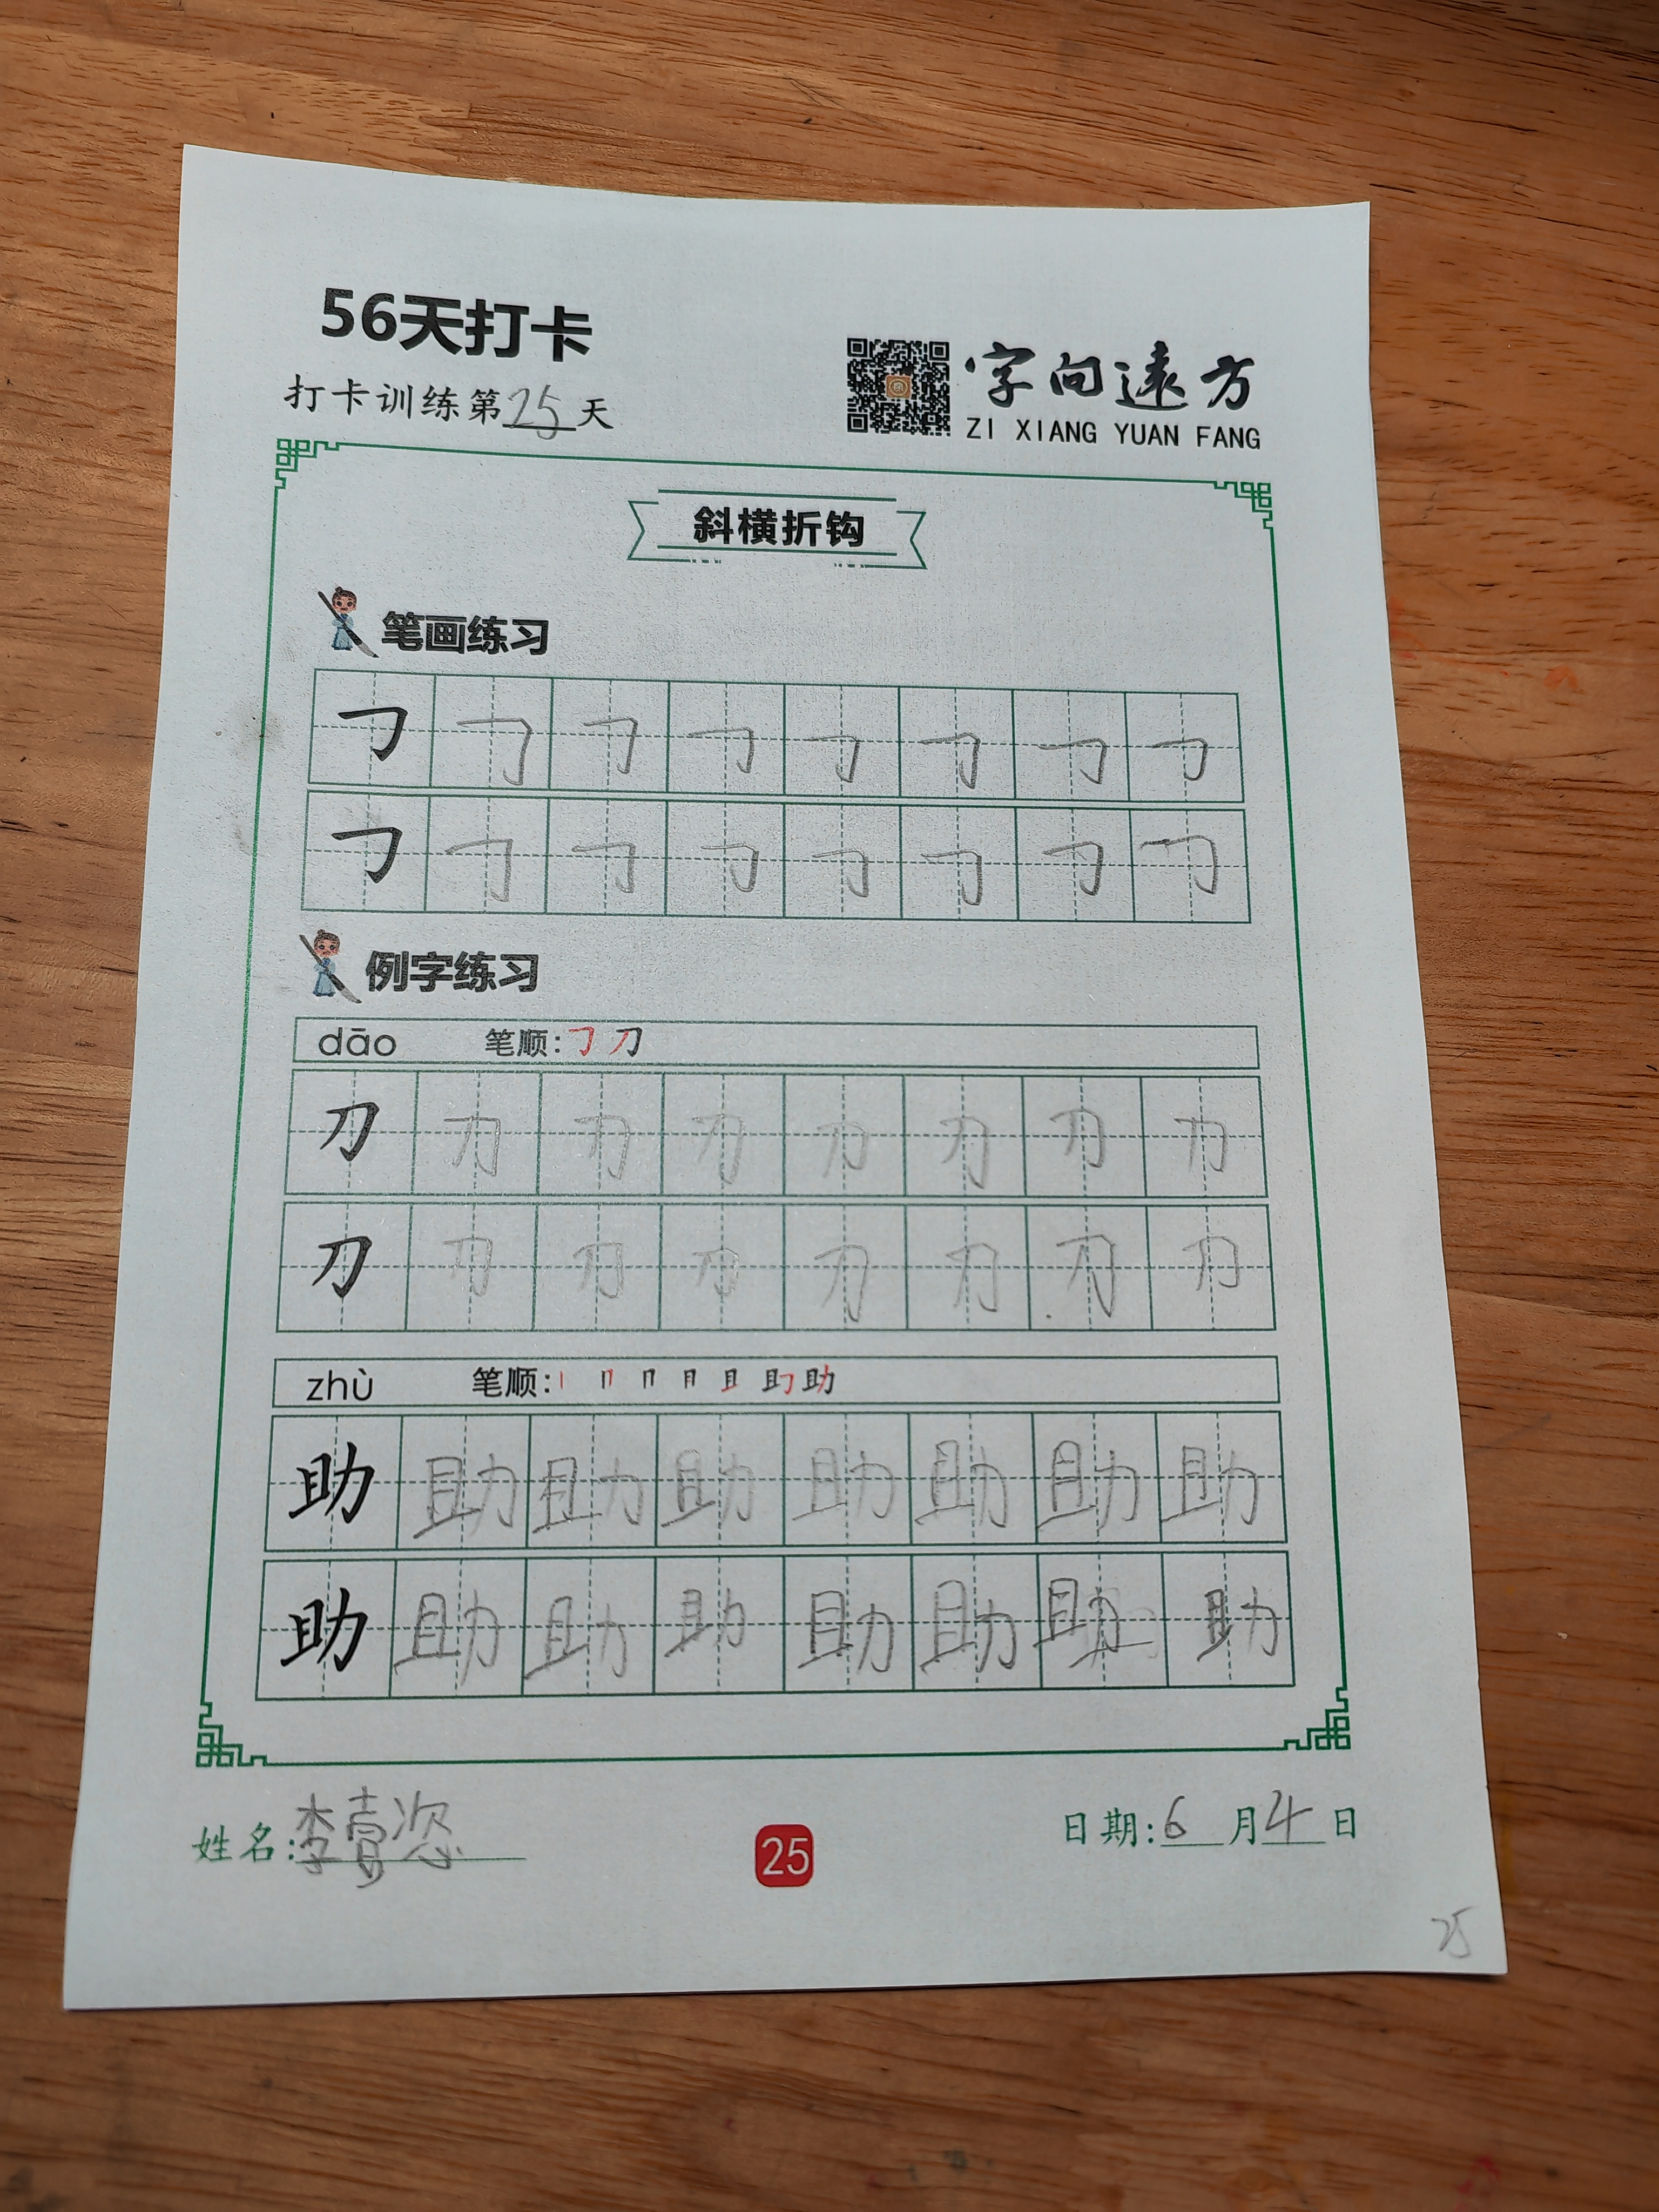 56天打卡
打卡训练第25天
字向遠方
ZI XIANG YUAN FANG
斜横折钩
笔画练习
𠃌 𠃌 𠃌 𠃌 𠃌 𠃌 𠃌 𠃌
𠃌 𠃌 𠃌 𠃌 𠃌 𠃌 𠃌 𠃌
例字练习
dāo 笔顺: 𠃌 刀
刀 刀 刀 刀 刀 刀 刀 刀
刀 刀 刀 刀 刀 刀 刀 刀
zhù 笔顺: 丨 冂 月 且 助
助 助 助 助 助 助 助 助
助 助 助 助 助 助 助 助
姓名:李
25
日期:6月4日
25